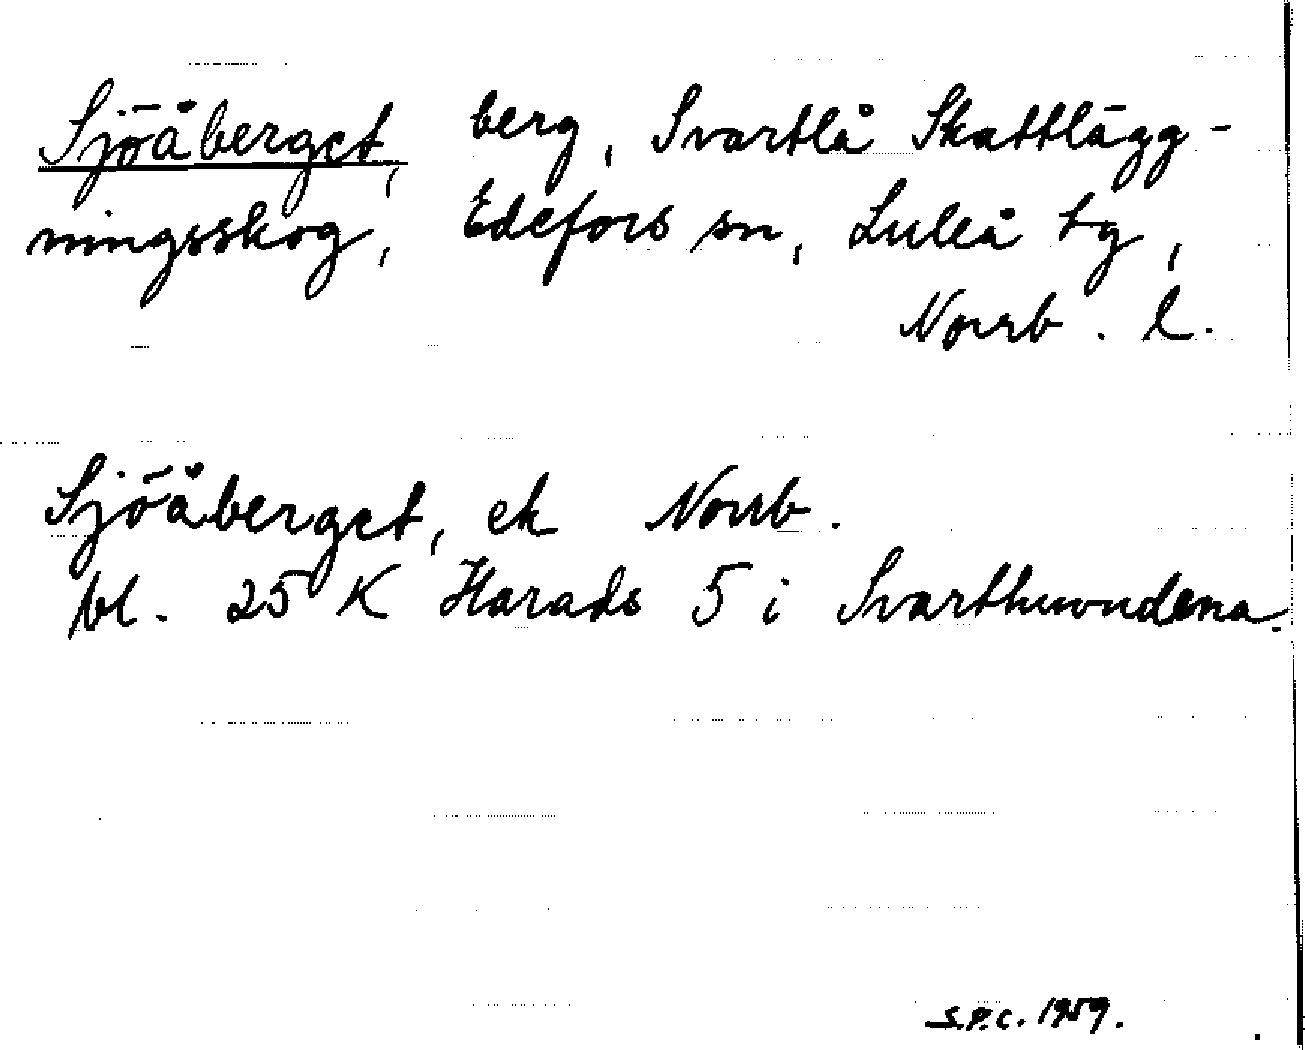 Sjöåberget, berg, Svartlå Skattlägg-
ningsskog, Edefors sn, Luleå tg,
Norrb. l.
Sjöåberget, ek Norrb.
bl. 25 K Harads 5 i
S.P.C. 1959.